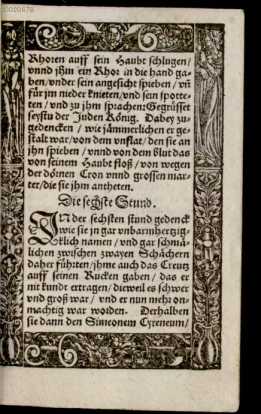 Rhoren auff sein Haubt schlugen/
vnnd jhm ein Rhor in die hand ga-
ben/vnder sein angesicht spieben/ vñ
für jm nieder knieten/vnd sein spotte-
ten / vnd zu jhm sprachen: Gegrüsset
seystu der Juden König. Dabey zu-
gedencken / wie jämmerlichen er ge-
stalt war/von dem vnflat/den sie an
jhn spieben / vnnd von dem blut das
von seinem Haubt floß / von wegen
der dörnen Cron vnnd grossen mar-
ter/die sie jhm antheten.
Die sechste Stund.
IN der sechsten stund gedenck
wie sie jn gar vnbarmhertzig-
klich namen / vnd gar schmä-
lichen zwischen zwayen Schächern
daher führten/jhme auch das Creutz
auff seinen Rucken gaben / das er
nit kundt ertragen / dieweil es schwer
vnd groß war / vnd er nun mehr on-
mächtig war worden. Derhalben
sie dann den Simeonem Cyreneum/